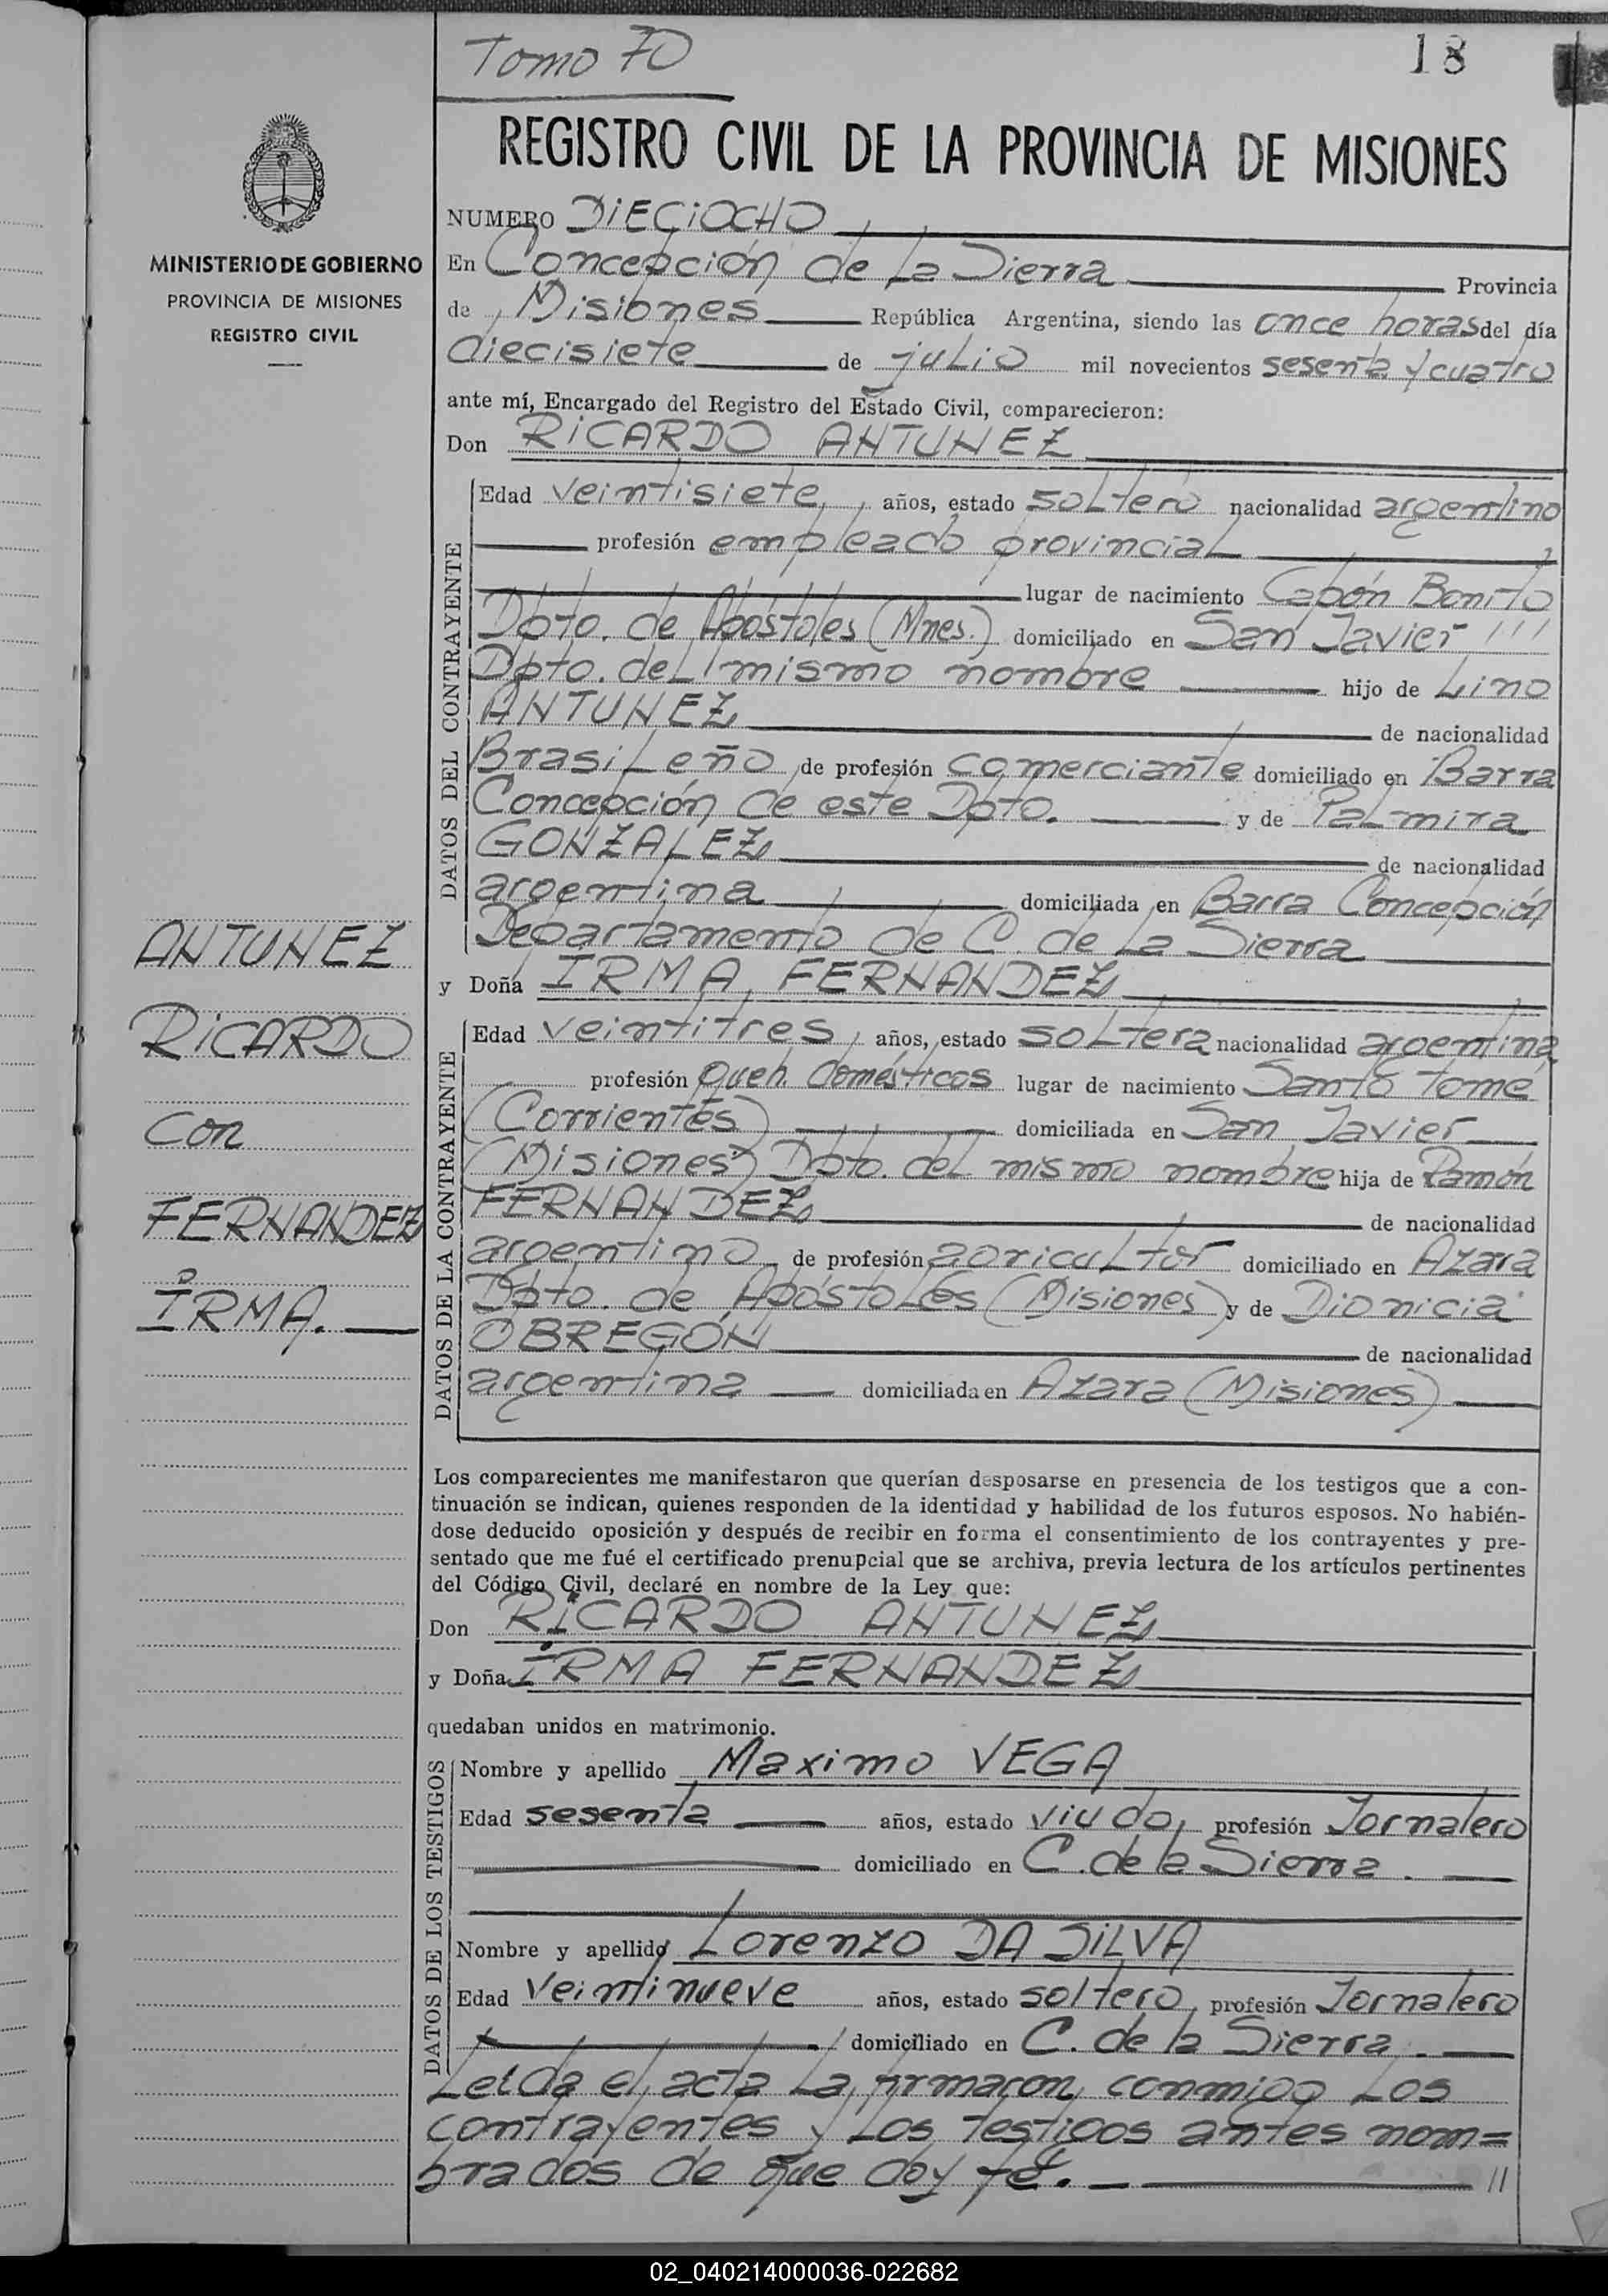 Tomo 70
18
REGISTRO CIVIL DE LA PROVINCIA DE MISIONES
MINISTERIO DE GOBIERNO
PROVINCIA DE MISIONES
REGISTRO CIVIL
NUMERO DIECIOCHO
En Concepción de La Sierra Provincia
de Misiones República Argentina, siendo las once horas del día
diecisiete de julio mil novecientos sesenta y cuatro
ante mí, Encargado del Registro del Estado Civil, comparecieron:
Don RICARDO ANTUNEZ
DATOS DEL CONTRAYENTE
Edad veintisiete, años, estado soltero nacionalidad argentino
profesión empleado provincial
lugar de nacimiento Capón Bonito
Dpto. de Apóstoles (Mnes.) domiciliado en San Javier
Dpto. del mismo nombre hijo de Lino
ANTUNEZ de nacionalidad
Brasileño de profesión comerciante domiciliado en Barra
Concepción de este Dpto. y de Palmira
GONZALEZ de nacionalidad
argentina domiciliada en Barra Concepción
Departamento de C. de La Sierra
y Doña IRMA FERNANDEZ
DATOS DE LA CONTRAYENTE
Edad veintitres, años, estado soltera nacionalidad argentina
profesión queh. domésticos lugar de nacimiento Santo Tomé
(Corrientes) domiciliada en San Javier
(Misiones) Dpto. del mismo nombre hija de Ramón
FERNANDEZ de nacionalidad
argentino de profesión agricultor domiciliado en Azara
Dpto. de Apóstoles (Misiones) y de Dionicia
OBREGÓN de nacionalidad
argentina domiciliada en Azara (Misiones)
ANTUNEZ
RICARDO
con
FERNANDEZ
IRMA.
Los comparecientes me manifestaron que querían desposarse en presencia de los testigos que a con-
tinuación se indican, quienes responden de la identidad y habilidad de los futuros esposos. No habién-
dose deducido oposición y después de recibir en forma el consentimiento de los contrayentes y pre-
sentado que me fué el certificado prenupcial que se archiva, previa lectura de los artículos pertinentes
del Código Civil, declaré en nombre de la Ley que:
Don RICARDO ANTUNEZ
y Doña IRMA FERNANDEZ
quedaban unidos en matrimonio.
DATOS DE LOS TESTIGOS
Nombre y apellido Maximo VEGA
Edad sesenta años, estado viudo, profesión Jornalero
domiciliado en C. de la Sierra.
Nombre y apellido Lorenzo DA SILVA
Edad veintinueve años, estado soltero, profesión Jornalero
domiciliado en C. de la Sierra.
Leída el acta La firmaron conmigo Los
contrayentes y Los testigos antes nom=
brados de que doy fé. //
02_040214000036-022682